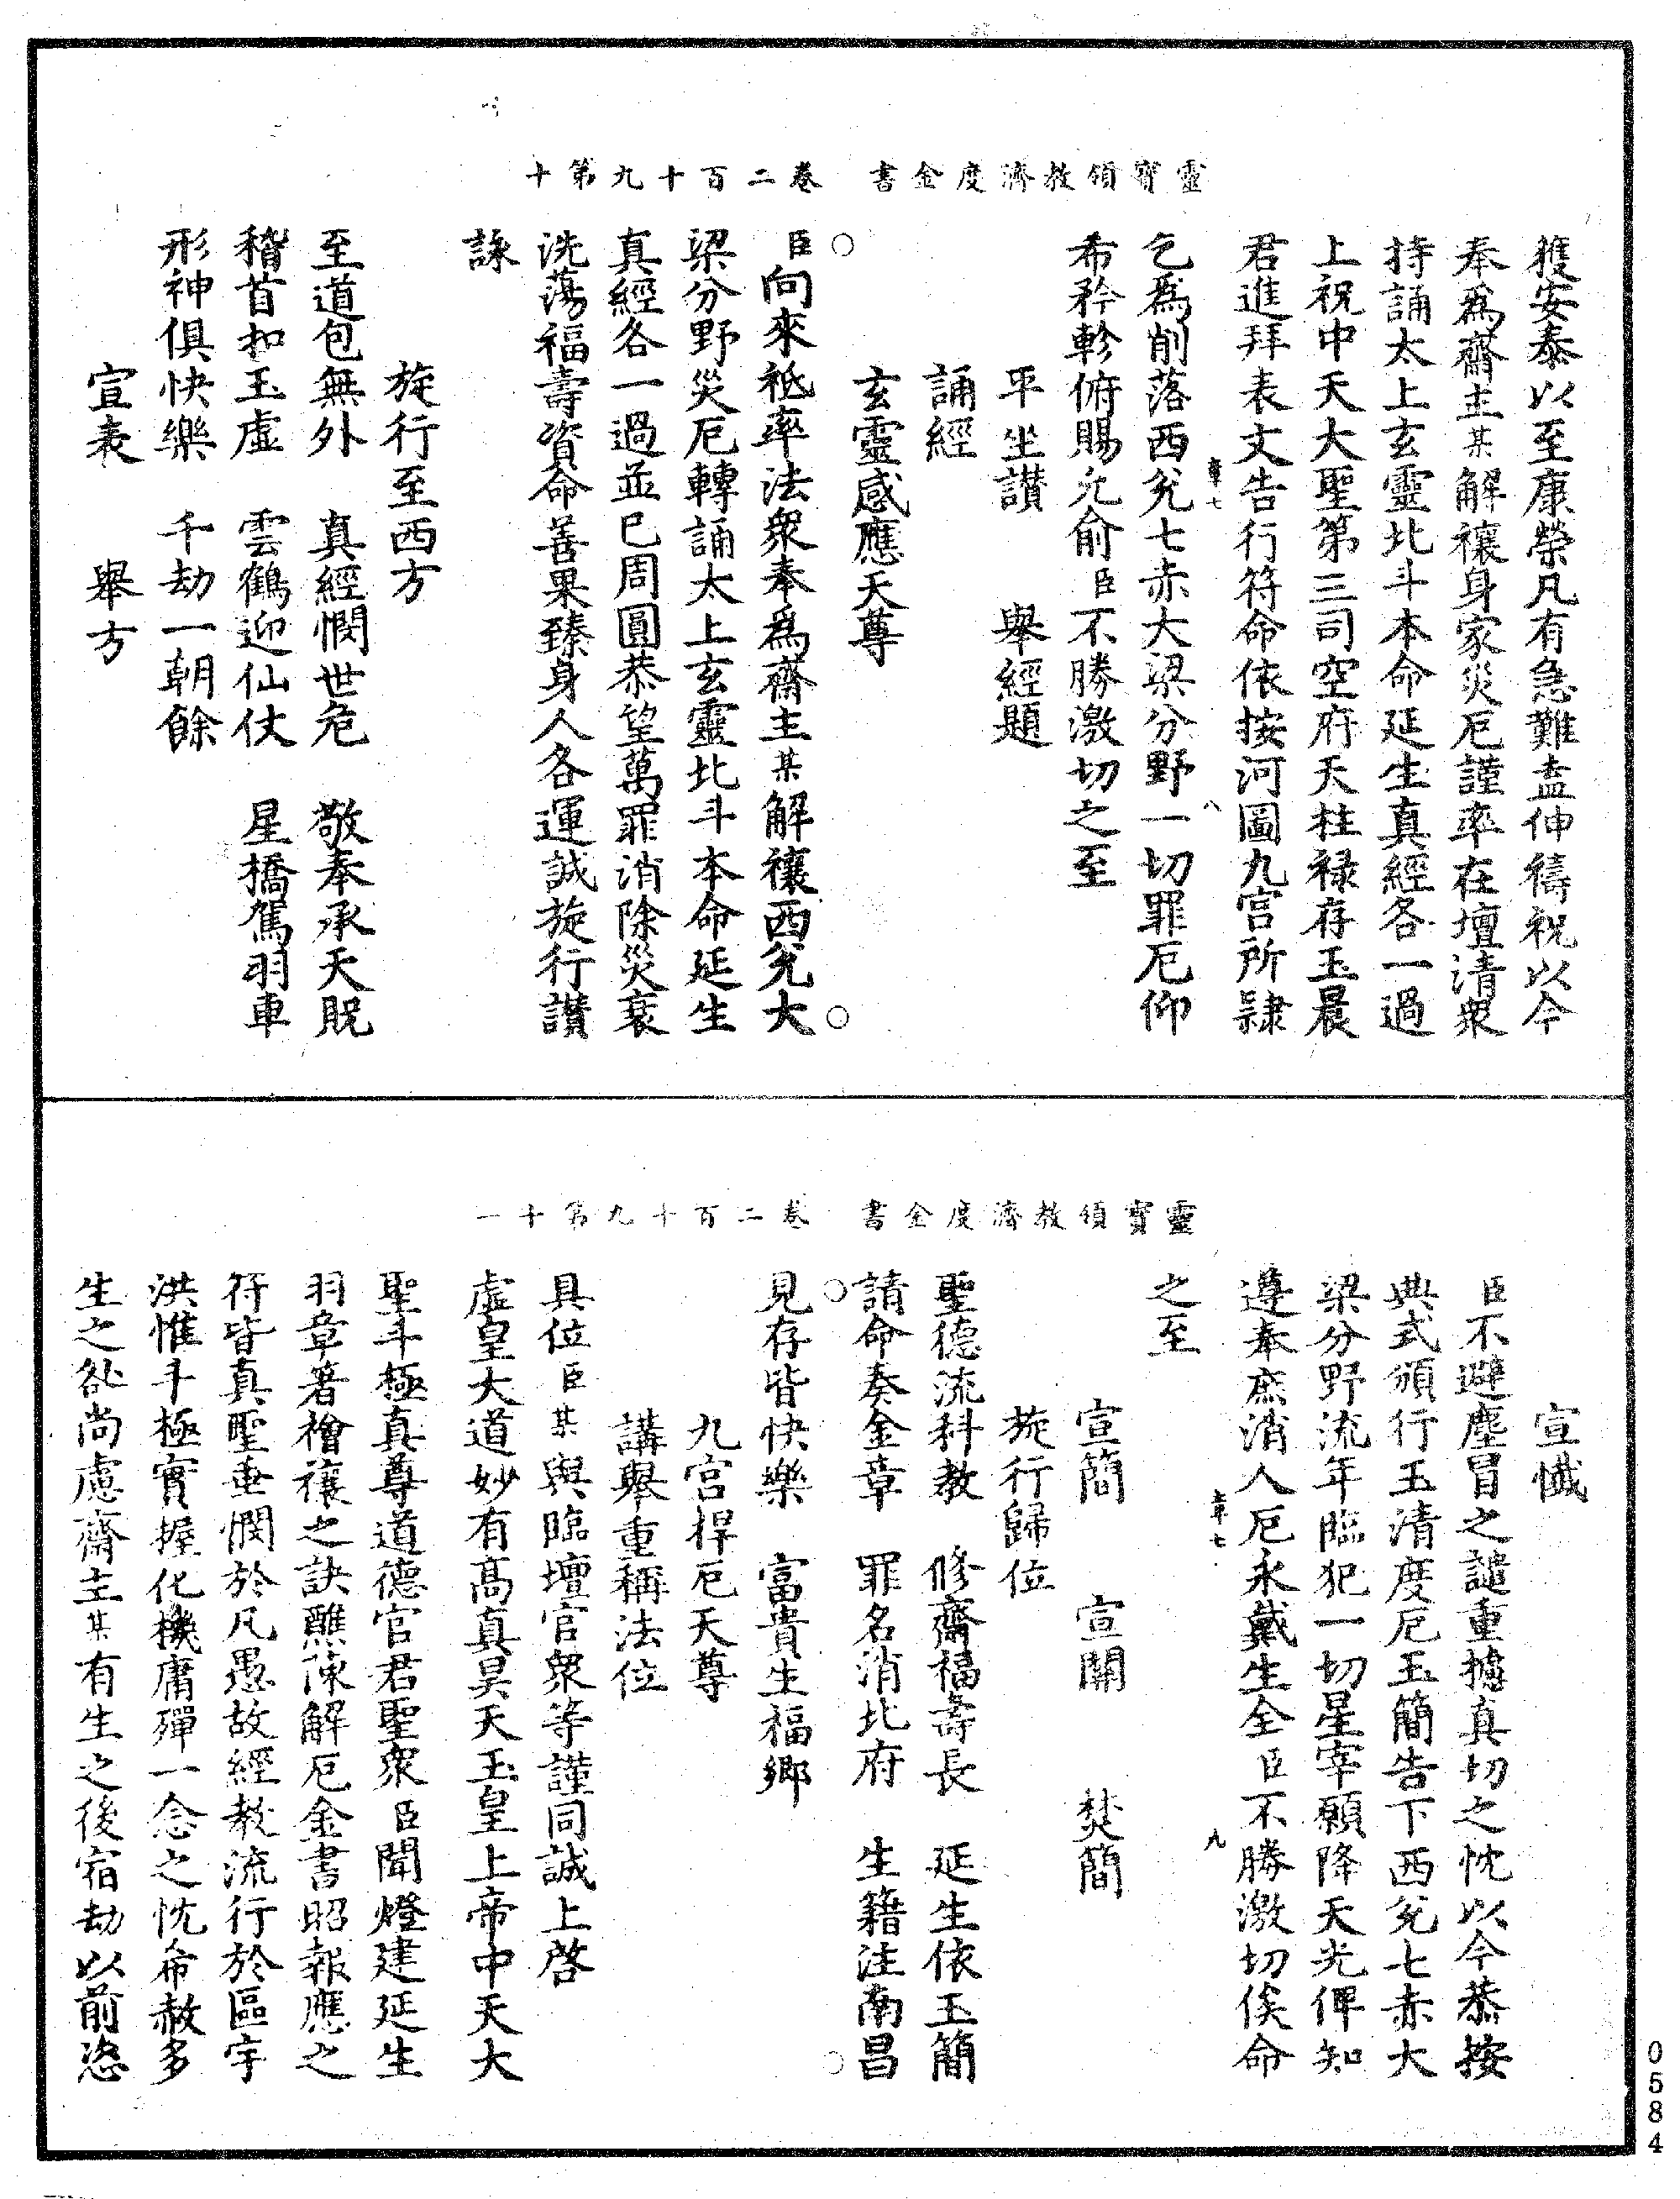 靈寶領教濟度金書　卷二百十九第十
獲安泰以至康榮凡有急難盍伸禱祝以今
奉爲齋主某解禳身家災厄謹率在壇清衆
持誦太上玄靈北斗本命延生真經各一過
上祝中天大聖第三司空府天柱禄存玉晨
君進拜表文告行符命依按河圖九宫所隷
章七　八
乞爲削落西兊七赤大梁分野一切罪厄仰
希矜軫俯賜允俞臣不勝激切之至
平坐讃　舉經題
誦經
玄靈感應天尊
臣向來祗率法衆奉爲齋主某解禳西兊大
梁分野災厄轉誦太上玄靈北斗本命延生
真經各一過並已周圓恭望萬罪消除災衰
洗蕩福壽資命善果臻身人各運誠旋行讃
詠
旋行至西方
至道包無外　真經憫世危　敬奉承天貺
稽首扣玉虛　雲鶴迎仙仗　星橋駕羽車
形神俱快樂　千劫一朝餘
宣表　舉方
靈寶領教濟度金書　卷二百十九第十一
宣懴
臣不避塵冒之譴重攄真切之忱以今恭按
典式頒行玉清度厄玉簡告下西兊七赤大
梁分野流年臨犯一切星宰願降天光俾知
遵奉庶消人厄永戴生全臣不勝激切俟命
章七　九
之至
宣簡　宣關　焚簡
旋行歸位
聖德流科教　修齋福壽長　延生依玉簡
請命奏金章　罪名消北府　生籍注南昌
見存皆快樂　富貴生福鄉
九宫捍厄天尊
講舉重稱法位
具位臣某與臨壇官衆等謹同誠上啓
虛皇大道妙有高真昊天玉皇上帝中天大
聖斗極真尊道德官君聖衆臣聞燈建延生
羽章著禬禳之訣醮陳解厄金書昭報應之
符皆真聖垂憫於凡愚故經教流行於區宇
洪惟斗極實握化機庸殫一念之忱希赦多
生之愆尚慮齋主某有生之後宿劫以前恣
0584